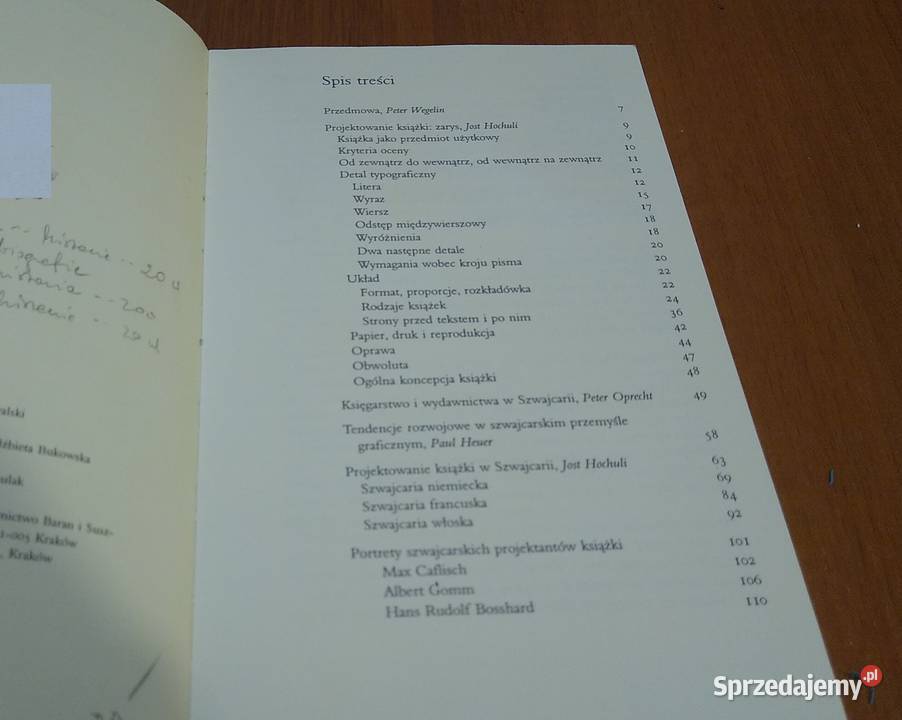 historie -- 20
biografie
historia -- 200
Spis treści
Przedmowa, Peter Wegelin 7
Projektowanie książki: zarys, Jost Hochuli 9
Książka jako przedmiot użytkowy 9
Kryteria oceny 10
Od zewnątrz do wewnątrz, od wewnątrz na zewnątrz 11
Detal typograficzny 12
Litera 12
Wyraz 15
Wiersz 17
Odstęp międzywierszowy 18
Wyróżnienia 18
Dwa następne detale 20
Wymagania wobec kroju pisma 20
Układ 22
Format, proporcje, rozkładówka 22
Rodzaje książek 24
Strony przed tekstem i po nim 36
Papier, druk i reprodukcja 42
Oprawa 44
Obwoluta 47
Ogólna koncepcja książki 48
Księgarstwo i wydawnictwa w Szwajcarii, Peter Oprecht 49
Tendencje rozwojowe w szwajcarskim przemyśle
graficznym, Paul Heuer 58
Projektowanie książki w Szwajcarii, Jost Hochuli 63
Szwajcaria niemiecka 69
Szwajcaria francuska 84
Szwajcaria włoska 92
Portrety szwajcarskich projektantów książki 101
Max Caflisch 102
Albert Gomm 106
Hans Rudolf Bosshard 110
alski
żbieta Bukowska
ulak
nictwo Baran i Susz-
1-005 Kraków
, Kraków
Sprzedajemy.pl